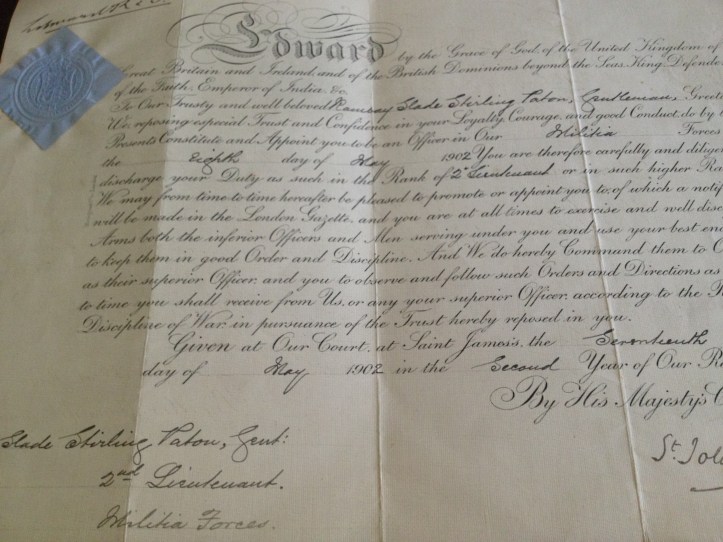 Edward R & I
Edward by the Grace of God, of the United Kingdom of
Great Britain and Ireland, and of the British Dominions beyond the Seas, King, Defende
of the Faith, Emperor of India, &c.
To Our Trusty and well beloved Ramsay Slade Stirling Paton, Gentleman, Greeti
We, reposing especial Trust and Confidence in your Loyalty, Courage, and good Conduct, do by t
Presents Constitute and Appoint you to be an Officer in Our Militia Forces
the Eighth day of May 1902 You are therefore carefully and dilige
discharge your Duty as such in the Rank of 2nd Lieutenant or in such higher Ra
We may from time to time hereafter be pleased to promote or appoint you to, of which a notif
will be made in the London Gazette, and you are at all times to exercise and well disc
Arms both the inferior Officers and Men serving under you and use your best end
to keep them in good Order and Discipline. And We do hereby Command them to O
as their superior Officer, and you to observe and follow such Orders and Directions as
to time you shall receive from Us, or any your superior Officer, according to the R
Discipline of War, in pursuance of the Trust hereby reposed in you.
Given at Our Court, at Saint James's, the Seventeenth
day of May 1902 in the Second Year of Our Re
By His Majesty's C
Slade Stirling Paton, Gent:
2nd Lieutenant.
Militia Forces.